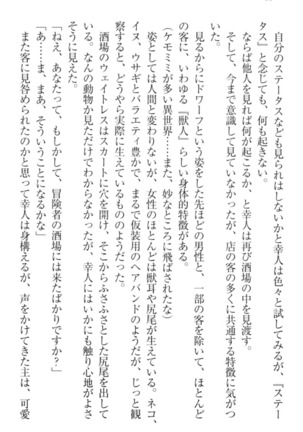 自分のステータスなども見られはしないかと幸人は色々と試してみるが、『ステー
タス』と念じても、何も起きない。
ならば他人を見れば何が起こるか、と幸人は再び酒場の中を見渡す。
そして、今まで意識して見ていなかったが、店の客の多くに共通する特徴に気がつ
く。
見るからにドワーフという姿をした先ほどの男性と、一部の客を除いて、ほとんど
の客に、いわゆる『獣人』らしい身体的特徴がある。
（ケモミミが多い異世界……また、妙なところに飛ばされたな）
姿としては人間と変わりないが、女性のほとんどは獣耳や尻尾が生えている。ネコ、
イヌ、ウサギとバラエティ豊かで、まるで仮装用のヘアバンドのようだが、じっと観
察すると、どうやら実際に生えているもののようだった。
酒場のウェイトレスはスカートに穴を開け、そこからふさふさとした尻尾を出して
いる。なんの動物か見ただけでわからなかったが、幸人にはいかにも触り心地がよさ
そうに見えた。
「ねえ、あなたって、もしかして、冒険者の酒場には来たばかりですか？」
「っ……ま、まあ、そういうことになるかな」
また客に見咎められたのかと思って幸人は身構えるが、声をかけてきた主は、可愛